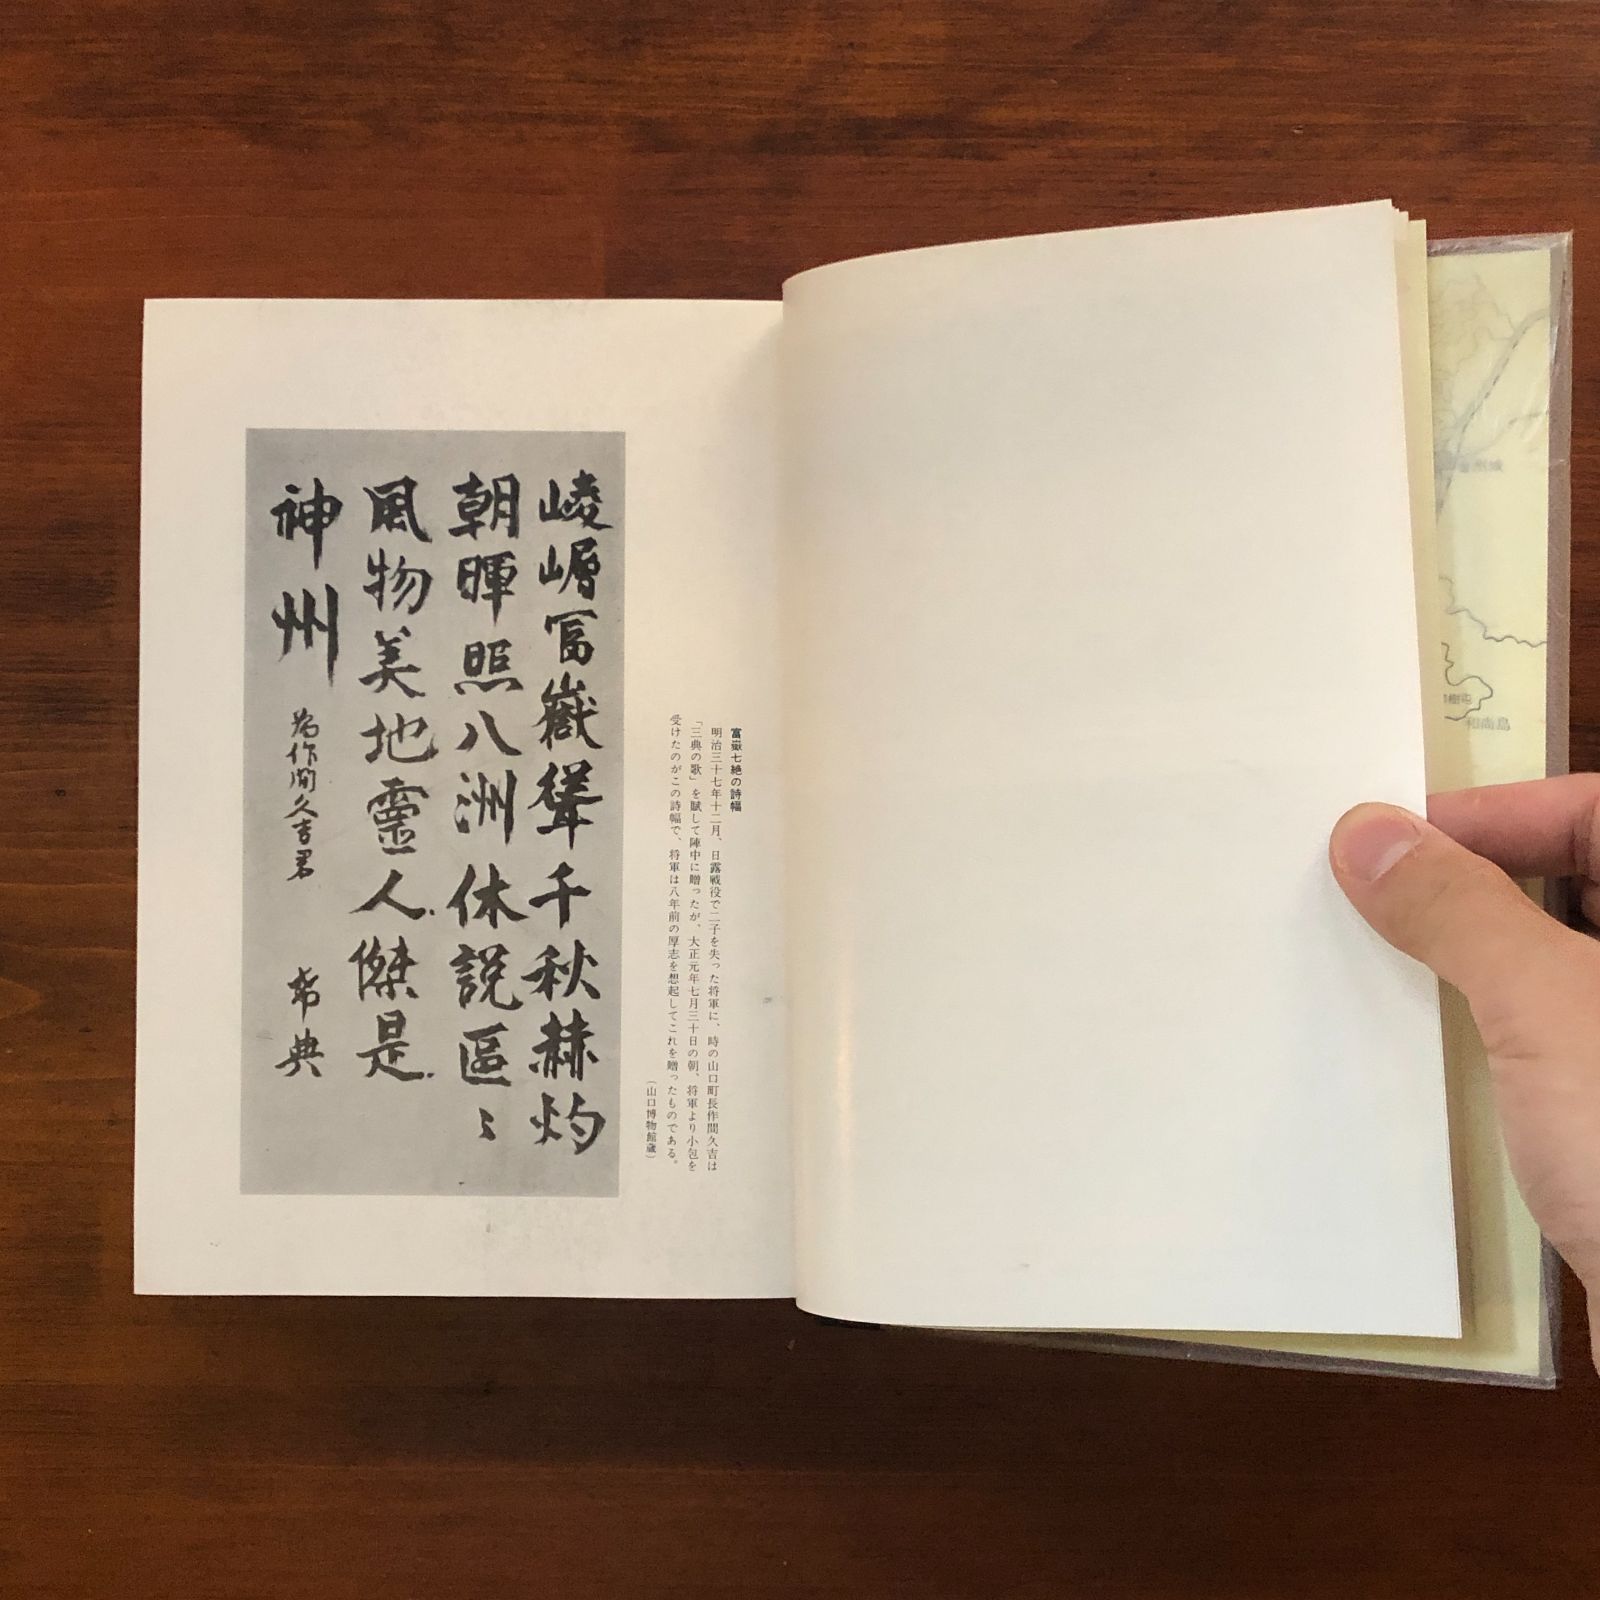 富嶽七絶の詩幅
明治三十七年十二月、日露戦役で二子を失った将軍に、時の山口町長作間久吉は
「三典の歌」を賦して陣中に贈ったが、大正元年七月三十日の朝、将軍より小包を
受けたのがこの詩幅で、将軍は八年前の厚志を想起してこれを贈ったものである。
（山口博物館蔵）
崚嶒冨嶽聳千秋赫灼
朝暉照八洲休説區〻
風物美地靈人傑是
神州
為作間久吉君
希典
和尚島